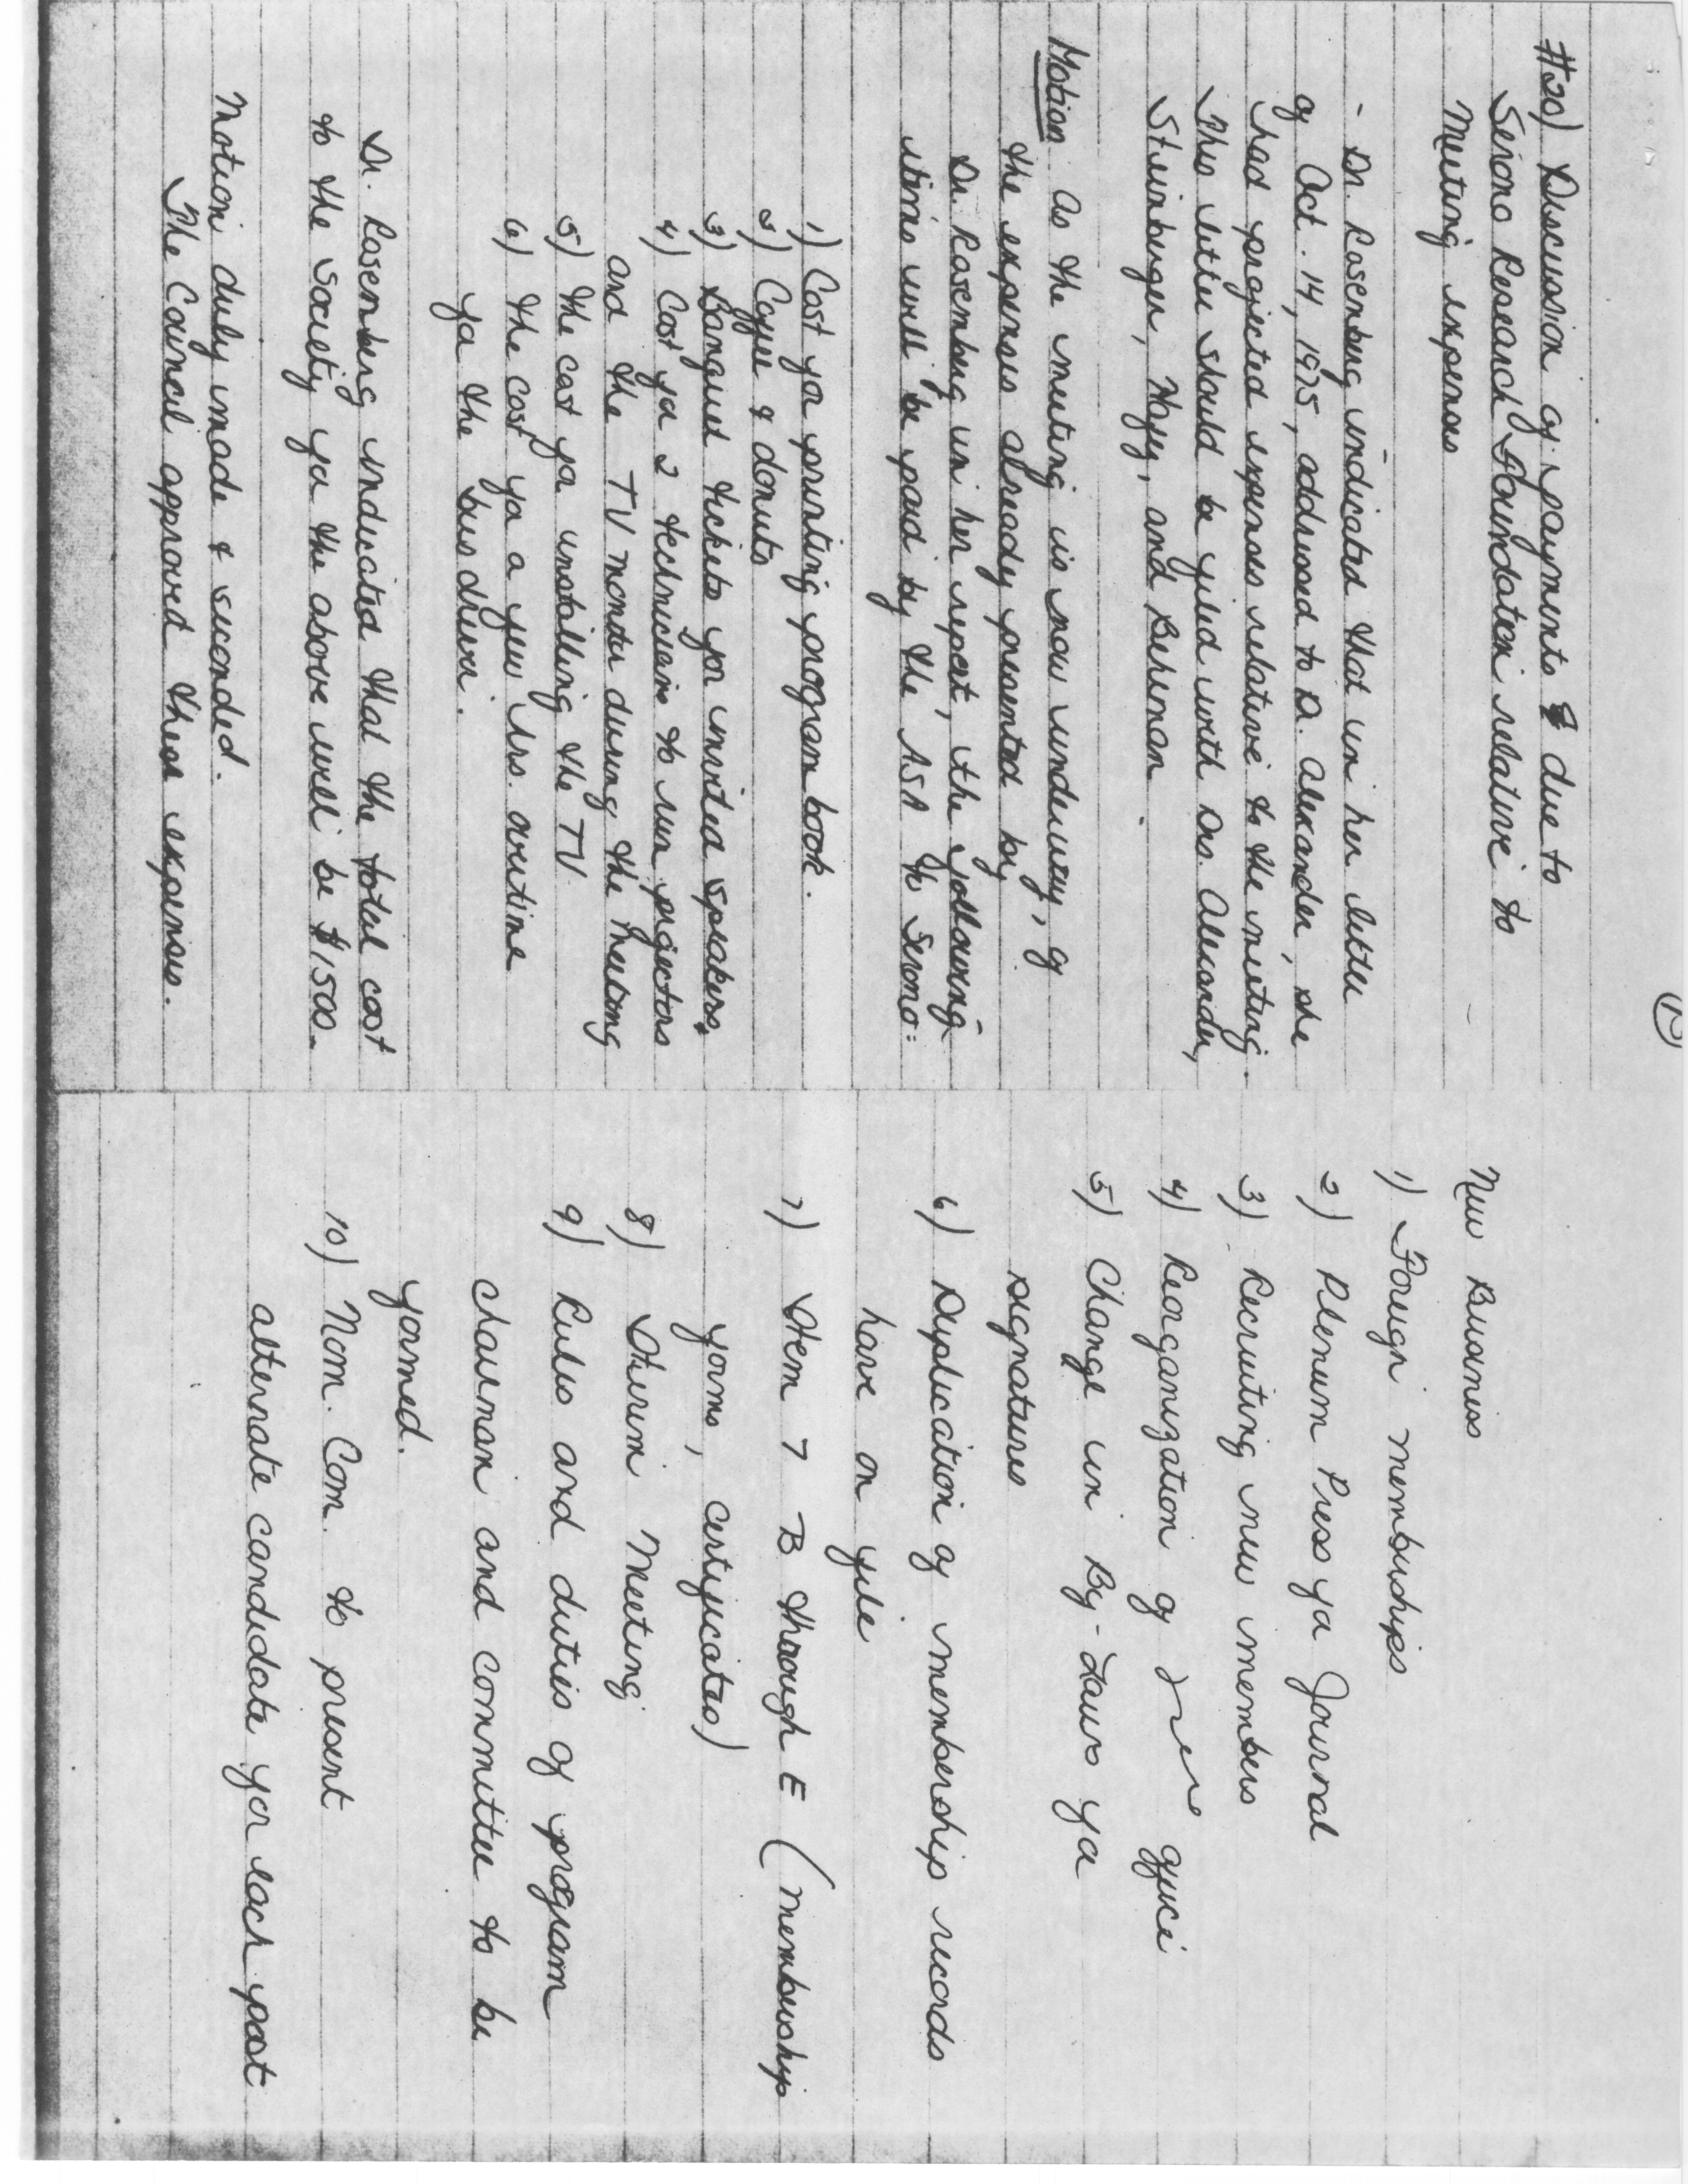 (12)
#20) Discussion of payments due to
Serono Research Foundation relative to
Meeting expenses
- Dr. Rosemberg indicated that in her letter
of Oct. 14, 1975, addressed to D. Alexander, she
had projected expenses relative to the meeting.
This letter should be filed with Drs. Alexander,
Steinberger, Hafez, and Behrman.
Motion As the meeting is now underway, of
the expenses already presented by
Dr. Rosemberg in her report, the following
items will be paid by the ASA to Serono:
1) Cost for printing program book.
2) Coffee & donuts
3) Banquet tickets for invited speakers.
4) Cost for 2 technicians to run projectors
and the TV monitor during the meeting
5) the cost for installing the TV
6) the cost for a few hrs. overtime
for the bus driver.
Dr. Rosemberg indicated that the total cost
to the society for the above will be $1500.
Motion duly made & seconded.
The Council approved these expenses.
New Business
1) Foreign memberships
2) Plenum Press for Journal
3) Recruiting new members
4) Reorganization of office
5) Change in By-Laws for
signatures
6) Duplication of membership records
have on file
7) Item 7 B through E (membership
forms, certificates)
8) Interim Meeting
9) Rules and duties of program
chairman and committee to be
formed.
10) Nom. Com. to present
alternate candidate for each post